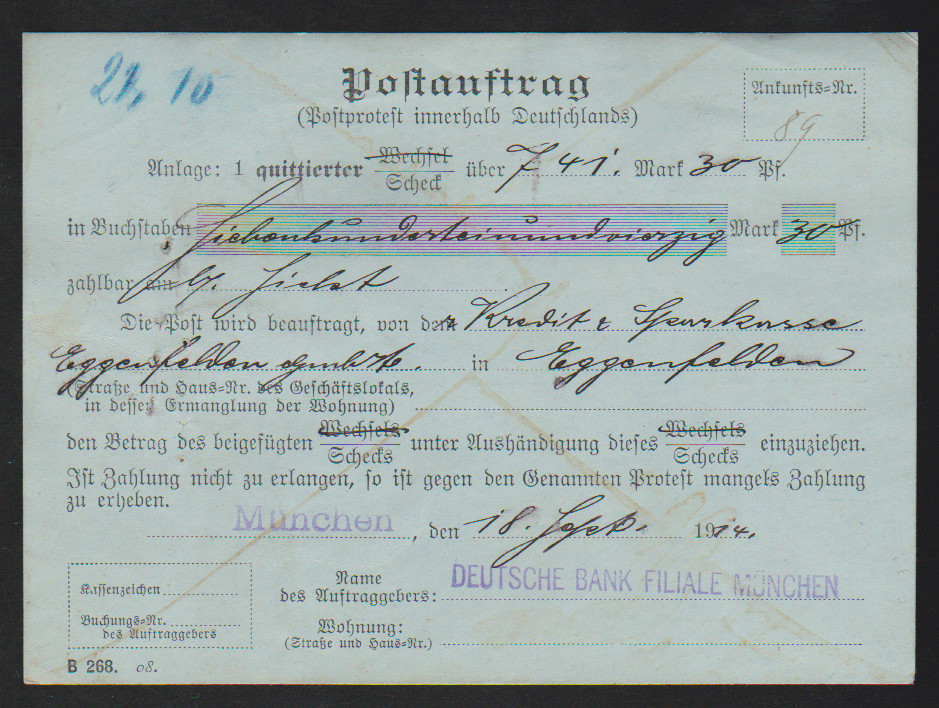 21. 10
Postauftrag
(Postprotest innerhalb Deutschlands)
Ankunfts=Nr.
89
Anlage: 1 quittierter Wechsel Scheck über 741. Mark 30 Pf.
in Buchstaben Siebenhunderteinundvierzig Mark 30 Pf.
zahlbar am b/ Sicht
Die Post wird beauftragt, von der Kredit & Sparkasse
Eggenfelden GmbH. in Eggenfelden
(Straße und Haus=Nr. des Geschäftslokals,
in dessen Ermanglung der Wohnung)
den Betrag des beigefügten Wechsels Schecks unter Aushändigung dieses Wechsels Schecks einzuziehen.
Ist Zahlung nicht zu erlangen, so ist gegen den Genannten Protest mangels Zahlung
zu erheben.
München, den 18. Sept. 1914.
Kassenzeichen
Buchungs=Nr.
des Auftraggebers
Name
des Auftraggebers: DEUTSCHE BANK FILIALE MÜNCHEN
Wohnung:
(Straße und Haus=Nr.)
B 268. 08.